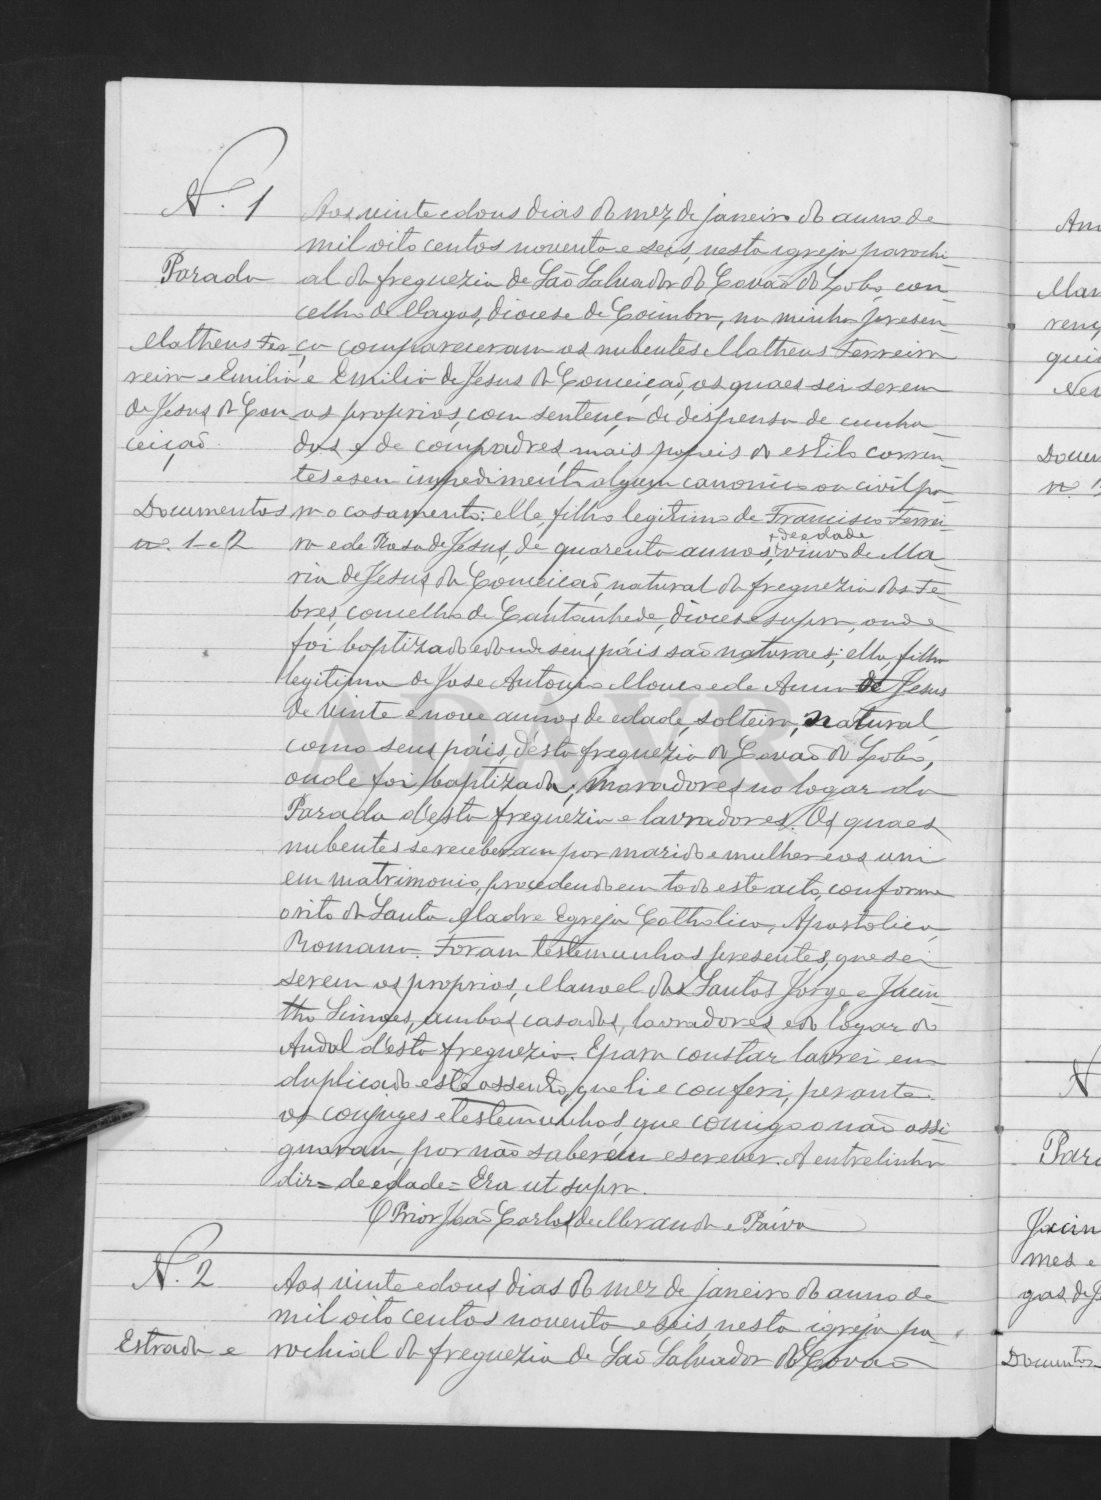 N. 1
Parada
Matheus Fer-
reira e Emilia
de Jesus da Con
ceição.
Documentos
nos. 1 e 2
Aos vinte e dous dias do mez de janeiro do anno de
mil oito centos noventa e seis, nesta igreja parochi-
al da freguezia de São Salvador do Covão do Lobo, con-
celho de Vagos, diocese de Coimbra, na minha presen-
ça compareceram os nubentes Matheus Ferreira
e Emilia de Jesus da Conceição, os quaes sei serem
os proprios, com sentença de dispensa de cunha-
dos e de compadres, mais papeis do estilo corren-
tes e sem impedimento algum canonico ou civil pa-
ra o casamento: elle, filho legitimo de Francisco Ferrei-
ra e de Rosa de Jesus, de quarenta annos, + de edade viuvo de Ma-
ria de Jesus da Conceição, natural da freguezia das Fe-
bres, concelho de Cantanhede, diocese supra, onde
foi baptizado e donde seus páis são naturaes; ella, filha
legitima de José Antonio Mouco e de Anna de Jesus
de vinte e nove annos de edade, solteira, natural,
como seus páis, d'ésta freguezia do Covão do Lobo,
onde foi baptizada; moradores no logar da
Parada d'esta freguezia e lavradores. Os quaes
nubentes se receberam por marido e mulher e os uni
em matrimonio, procedendo em todo este acto, conforme
o rito da Santa Madre Egreja Catholica, Apostolica,
Romana. Foram testemunhas presentes, que sei
serem os proprios, Manoel dos Santos Jorge e Jacin-
tho Simões, ambos casados, lavradores e do logar do
Andal d'esta freguezia. E para constar lavrei em
duplicado este assento, que li e conferi, perante
os conjuges e testemunhas, que comigo o não assi-
gnaram, por não saberem escrever. A entrelinha
diz = de edade = Era ut supra.
O Prior João Carlos de Miranda e Paiva
N. 2
Estrada e
Aos vinte e dous dias do mez de janeiro do anno de
mil oito centos noventa e seis, nesta igreja pa-
rochial da freguezia de São Salvador do Covão